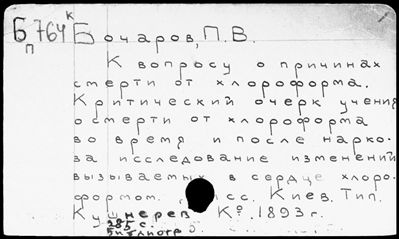 Б 764 к
П
Бочаров, П.В.
К вопросу о причинах
смерти от хлороформа.
Критический очерк учения
о смерти от хлороформа
во время и после нарко-
за исследование изменений
вызываемых в сердце хлоро-
формом. Дисс. Киев. Тип.
Кушнерев К°. 1893 г.
285 с.
Библиогр